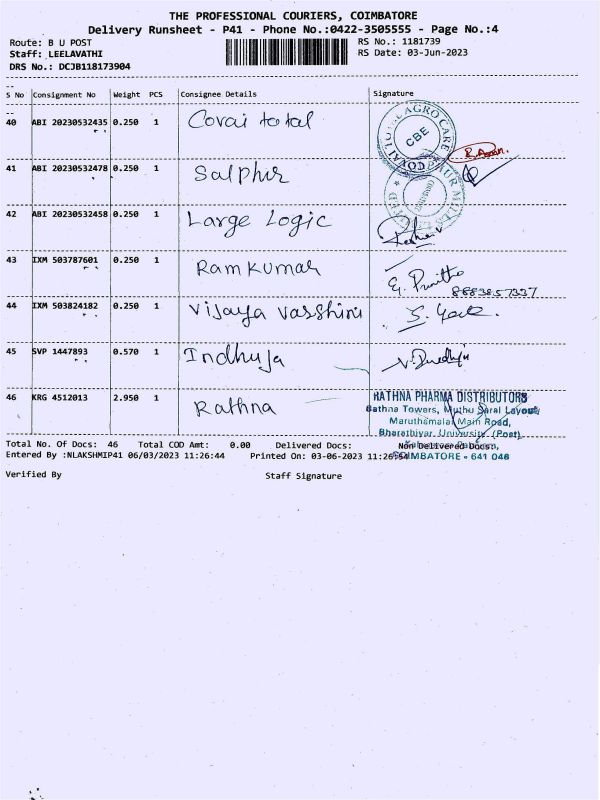 THE PROFESSIONAL COURIERS, COIMBATORE
Delivery Runsheet - P41 - Phone No.:0422-3505555 - Page No.:4
Route: B U POST RS No.: 1181739
Staff: LEELAVATHI RS Date: 03-Jun-2023
DRS No.: DCJB118173904
S No Consignment No Weight PCS Consignee Details Signature
40 ABI 20230532435 0.250 1 Covai total
AGRO CARE
CBE
R.Arun.
41 ABI 20230532478 0.250 1 Salphur
42 ABI 20230532458 0.250 1 Large Logic
43 IXM 503787601 0.250 1 Ramkumar
44 IXM 503824182 0.250 1 Vijaya vasshini
45 SVP 1447893 0.570 1 Indhuja
46 KRG 4512013 2.950 1 Rathna
RATHNA PHARMA DISTRIBUTORS
Rathna Towers, Muthu Saral Layout,
Maruthamalai Main Road,
Bharathiyar University (Post),
COIMBATORE - 641 046
Total No. Of Docs: 46 Total COD Amt: 0.00 Delivered Docs: Non Delivered Docs:
Entered By :NLAKSHMIP41 06/03/2023 11:26:44 Printed On: 03-06-2023 11:26:54
Verified By Staff Signature